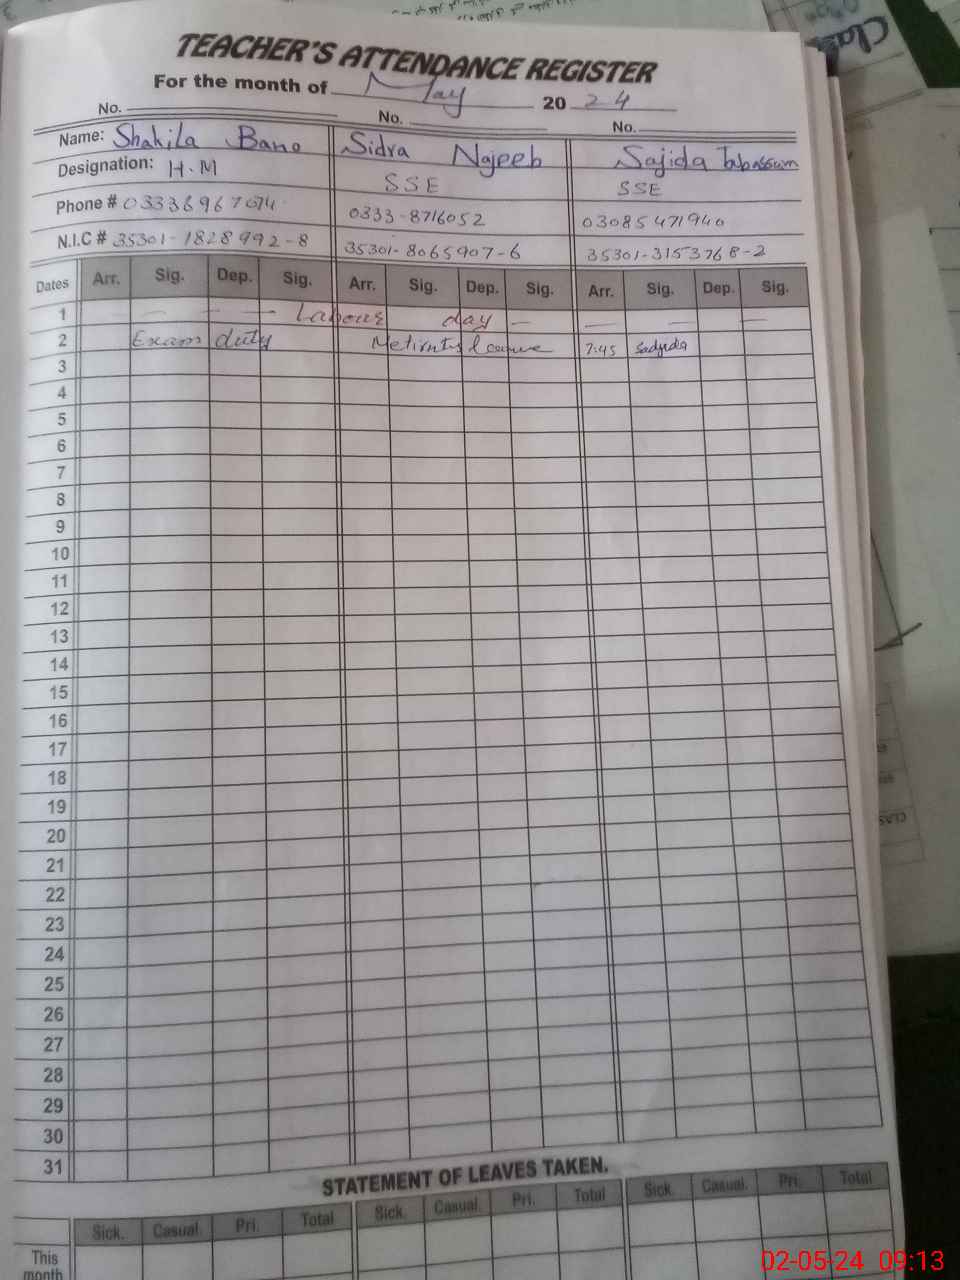 TEACHER'S ATTENDANCE REGISTER
For the month of May 20 24
No. No. No.
Name: Shakila Bano Sidra Najeeb Sajida Tabassum
Designation: H.M SSE SSE
Phone # 03336967074 0333-8716052 03085471940
N.I.C # 35301-1828992-8 35301-8065907-6 35301-3153768-2
Dates Arr. Sig. Dep. Sig. Arr. Sig. Dep. Sig. Arr. Sig. Dep. Sig.
1 — — — — Labour day — — — —
2 Exam duty 7:45 Sadjida
3
4
5
6
7
8
9
10
11
12
13
14
15
16
17
18
19
20
21
22
23
24
25
26
27
28
29
30
31
STATEMENT OF LEAVES TAKEN.
Sick. Casual. Pri. Total Sick. Casual. Pri. Total Sick. Casual. Pri. Total
This
month
02-05-24 09:13